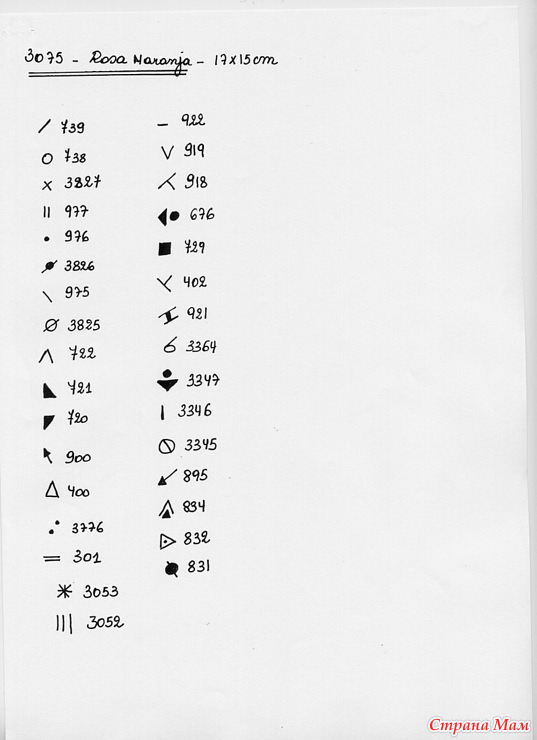 3075 - Rosa Naranja - 17x15cm
739
738
3827
977
976
3826
975
3825
722
721
720
900
400
3776
301
3053
3052
922
919
918
676
729
402
921
3364
3347
3346
3345
895
834
832
831
Страна Мам